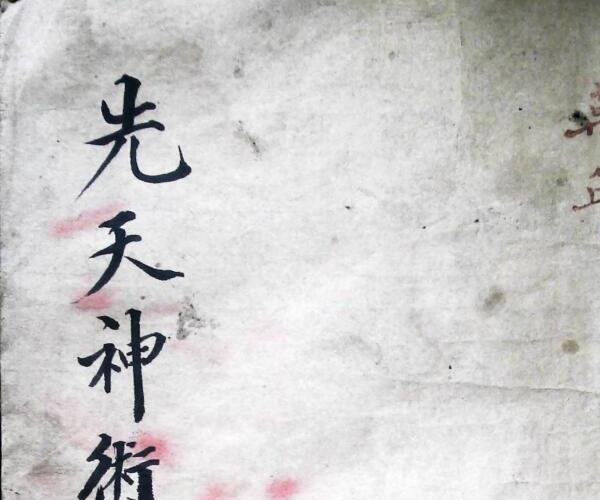 先天神術